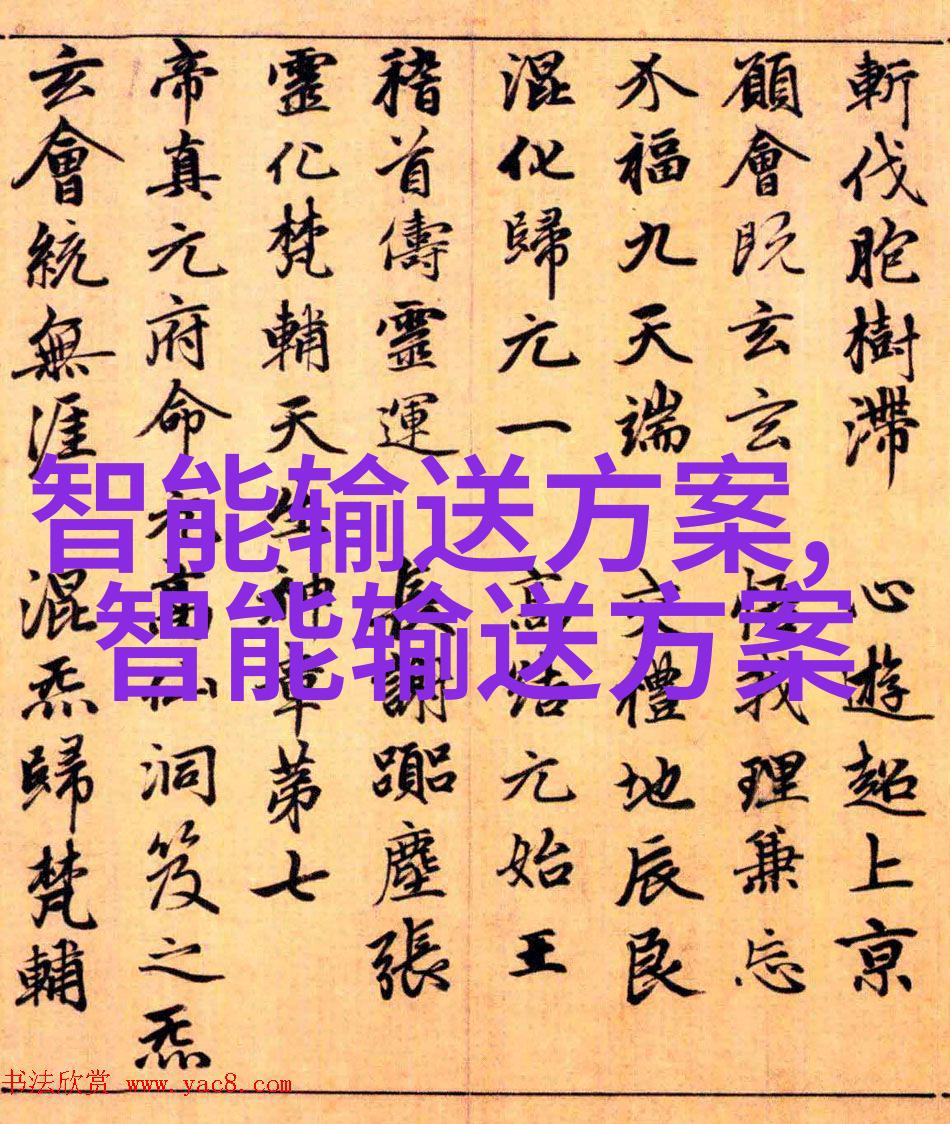 斬伐胞樹滯 心遊超上京
願會既玄玄 悟我理兼忘
介福九天端 交禮地辰良
混化歸元一 高結元始王
稽首儔靈運 長謝躡塵張
靈化梵輔天生神章第七
帝真元府命元高仙洞笈之炁
玄會統無涯 混炁歸梵輔
智能输送方案,
智能输送方案
书法欣赏 www.yac8.com